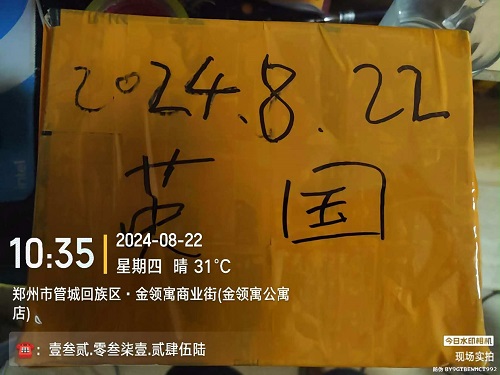 2024.8.22
英国
10:35
2024-08-22
星期四 晴 31°C
郑州市管城回族区·金领寓商业街(金领寓公寓
店)
：壹叁贰.零叁柒壹.贰肆伍陆
今日水印相机
现场实拍